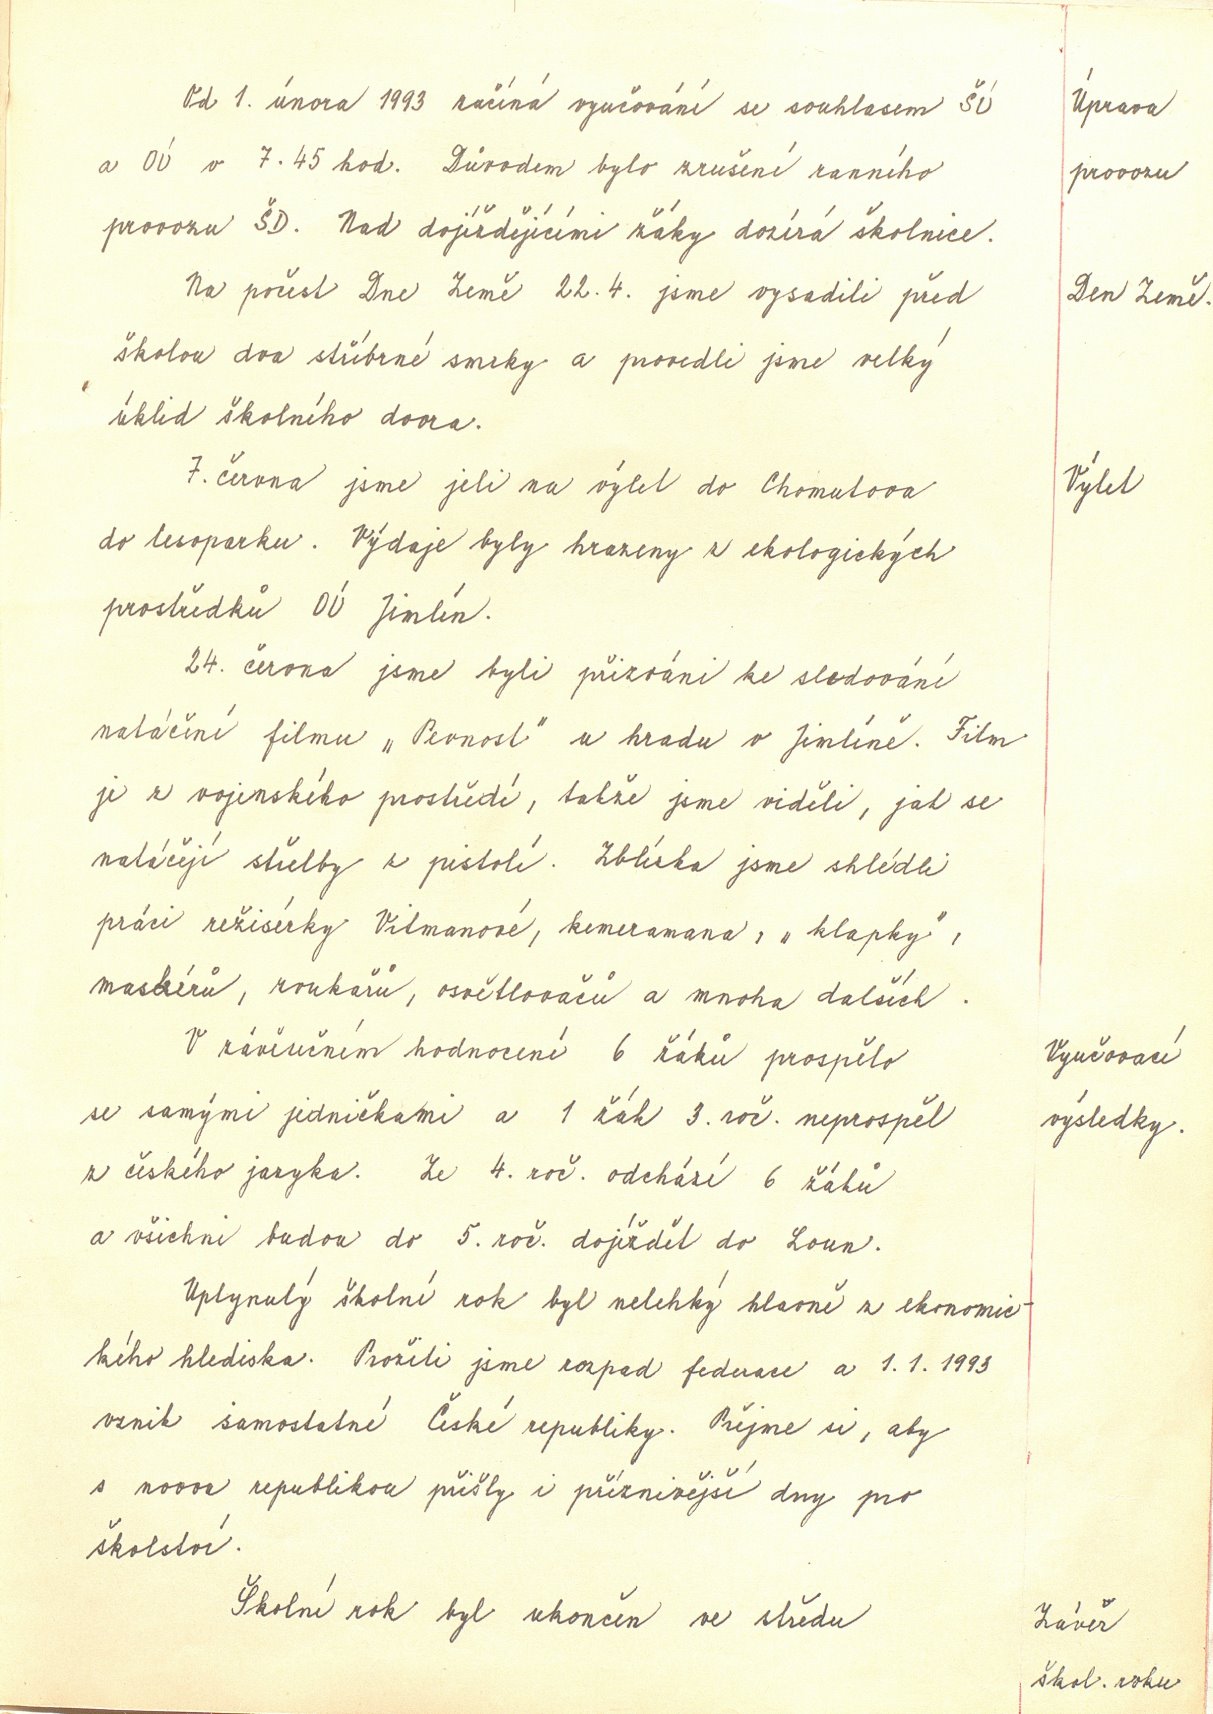 Od 1. února 1993 začíná vyučování se souhlasem ŠÚ
Úprava
a OÚ v 7.45 hod. Důvodem bylo zrušení ranního
provozu
provozu ŠD. Nad dojíždějícími žáky dozírá školnice.
Na počest Dne Země 22.4. jsme vysadili před
Den Země.
školou dva stříbrné smrky a provedli jsme velký
úklid školního dvora.
7. června jsme jeli na výlet do Chomutova
Výlet
do lesoparku. Výdaje byly hrazeny z ekologických
prostředků OÚ Jimlín.
24. června jsme byli přizváni ke sledování
natáčení filmu „Pevnost" u hradu v Jimlíně. Film
je z vojenského prostředí, takže jsme viděli, jak se
natáčejí střelby z pistolí. Zblízka jsme shlédli
práci režisérky Vilmanové, kemeramana, „klapky",
maskérů, zvukařů, osvětlovačů a mnoha dalších.
V závěrečném hodnocení 6 žáků prospělo
Vyučovací
se samými jedničkami a 1 žák 3. roč. neprospěl
výsledky.
z českého jazyka. Ze 4. roč. odchází 6 žáků
a všichni budou do 5. roč. dojíždět do Loun.
Uplynulý školní rok byl nelehký hlavně z ekonomic-
kého hlediska. Prožili jsme rozpad federace a 1.1.1993
vznik samostatné České republiky. Přejme si, aby
s novou republikou přišly i příznivější dny pro
školství.
Školní rok byl ukončen ve středu
Závěr
škol. roku